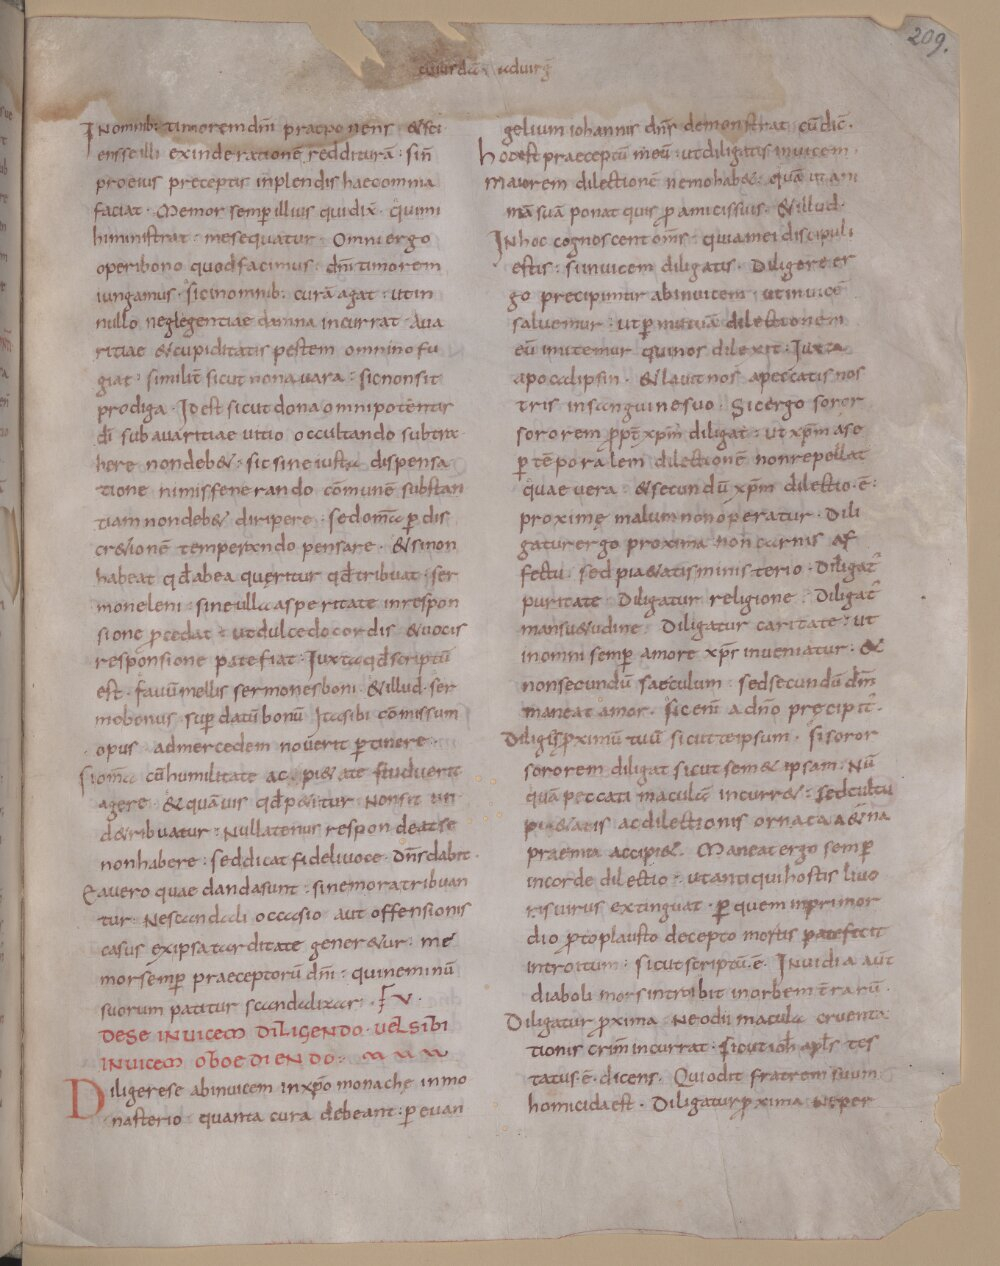 209.
cuiusdā ad uirg̅
IN omnib: timorem dn̄i praeponens & sci
ens se illi exinde rationē redditurā· si n̄
pro eius preceptis inplendis haec omnia
faciat· Memor semp̱ illius qui dix̄· q̊ mi
hi ministrat· me sequatur· Omni ergo
operi bono quod facimus· dn̄i timorem
iungamus· sic in omnib: curā agat· ut in
nullo neglegentiae damna incurrat· Aua
ritiae & cupiditatis pestem omnino fu
giat· simili&̄ sicut non auara· sic non sit
prodiga· Id est sicut dona omnipotentis
dī sub auaritiae uitio occultando subtra
here non deb&· sic sine iusta dispensa
tione nimis fenerando cōmunē substan
tiam non deb& diripere· sed om̄a p̱ dis
cr&ionē temperando pensare· & si non
habeat qđ ab ea quęritur qđ tribuat· ser
mone leni· sine ulla asperitate in respon
sione p̱cedat· ut dulcedo cordis & uocis
responsione patefiat· Iuxta qđ scriptū
est· fauū mellis sermones boni· & illud· ser
mo bonus sup̱ datū bonū Ita sibi cōmissum
opus ad mercedem nouerit p̱tinere·
si om̄a cū humilitate ac pi&ate studuerit
agere· & quāuis qđ p&itur Non sit un
de tribuatur· Nullatenus respondeat se
non habere· sed dicat fideli uoce· Dn̄s dabit·
Ea uero quae danda sunt· sine mora tribuan
tur· Ne scandali occasio aut offensionis
casus ex ipsa tarditate gener&ur· me
mor semp̱ praeceptorū dn̄i· qui neminū
suorum patitur scandalizari· F V·
DE SE INUICEM DILIGENDO· UEL SIBI
INUICEM OBOEDIENDO·
Diligere se ab inuicem in xp̄o monachę in mo
nasterio quanta cura debeant· p̱ euan
gelium iohannis dn̄s demonstrat cū dic̄·
hoc est praeceptū meū· ut diligatis inuicem·
Maiorem dilectionē nemo hab&· quā ut ani
mā suā ponat quis p̱ amicis suis· & illud·
IN hoc cognoscent om̄s· quia mei discipuli
estis· si inuicem diligatis· Diligere er
go precipimur ab inuicem ut inuicē
saluemur· ut p̱ mutuā dilectionem
eū imitemur qui nos dilexit· Iuxta
apocalipsin· & lauit nos a peccatis nos
tris in sanguine suo· Sic ergo soror
sororem p̱pt̄ xp̄m diligat· ut xp̄m a se
p̱ tēporalem dilectionē non repellat
quae uera & secundū xp̄m dilectio· ē·
proximę malum non operatur· Dili
gatur ergo proxima non carnis af
fectu· sed pia&atis ministerio· Diligat᷑
puritate· Diligatur religione· Diligat᷑
mansu&udine Diligatur caritate· ut
in omni semp̱ amore xp̄s inueniatur· &
non secundū saeculum· sed secundū dm̄
maneat amor· Sic eni̅ a dn̄o precipit᷑·
Diligis p̱ximū tuū sicut te ipsum· si soror
sororem diligat sicut sem& ipsam· Nū
quā peccati maculā incurr&· Sed cultu
pi&atis ac dilectionis ornata a&na
praemia accipi&· Maneat ergo semp̱
in corde dilectio· ut antiqui hostis liuo
ris uirus extinguat· p̱ quem in primor
dio p̱toplausto decepto mortis patefecit
introitum· sicut scriptū· ē· Inuidia aut̄
diaboli mors introibit in orbem t̄rarū·
Diligatur p̱xima Ne odii macula cruenta
tionis crim̄ incurrat· Sicut ioh̄ apl̄s tes
tatus· ē· dicens· Qui odit fratrem suum
homicida est· Diligatur p̱xima Ne per